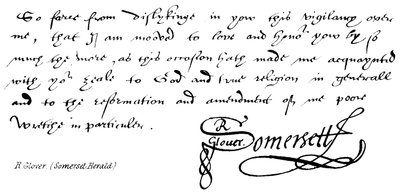 So farre from dislykinge in yow this vigilancy over
me, that I am moved to love and honor yow by so
much the more, as this occasion hath made me acquaynted
with yor zeale to God and true religion in generall
and to the reformation and amendment of me poore
Wretche in particuler.
R
Glover. Somersett
R. Glover. (Somerset Herald)